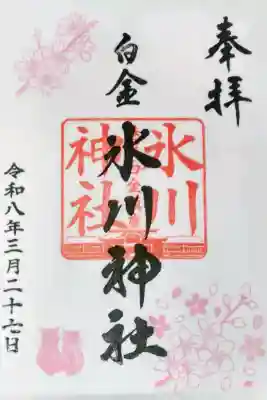 奉拝
白金
氷川神社
氷川
神社
令和八年三月二十七日